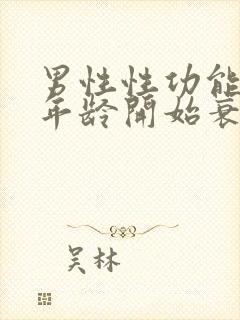 男性性功能
年龄開始衰
吴林